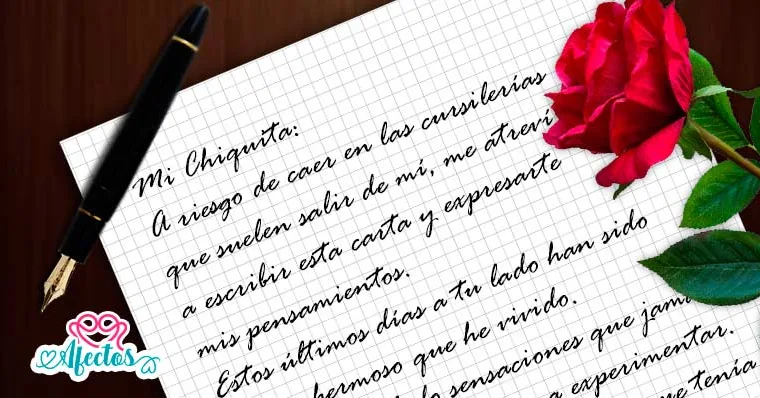 Mi Chiquita:
A riesgo de caer en las cursilerías
que suelen salir de mí, me atreví
a escribir esta carta y expresarte
mis pensamientos.
Estos últimos días a tu lado han sido
hermoso que he vivido.
sensaciones que
a experimentar.
tenía
Afectos